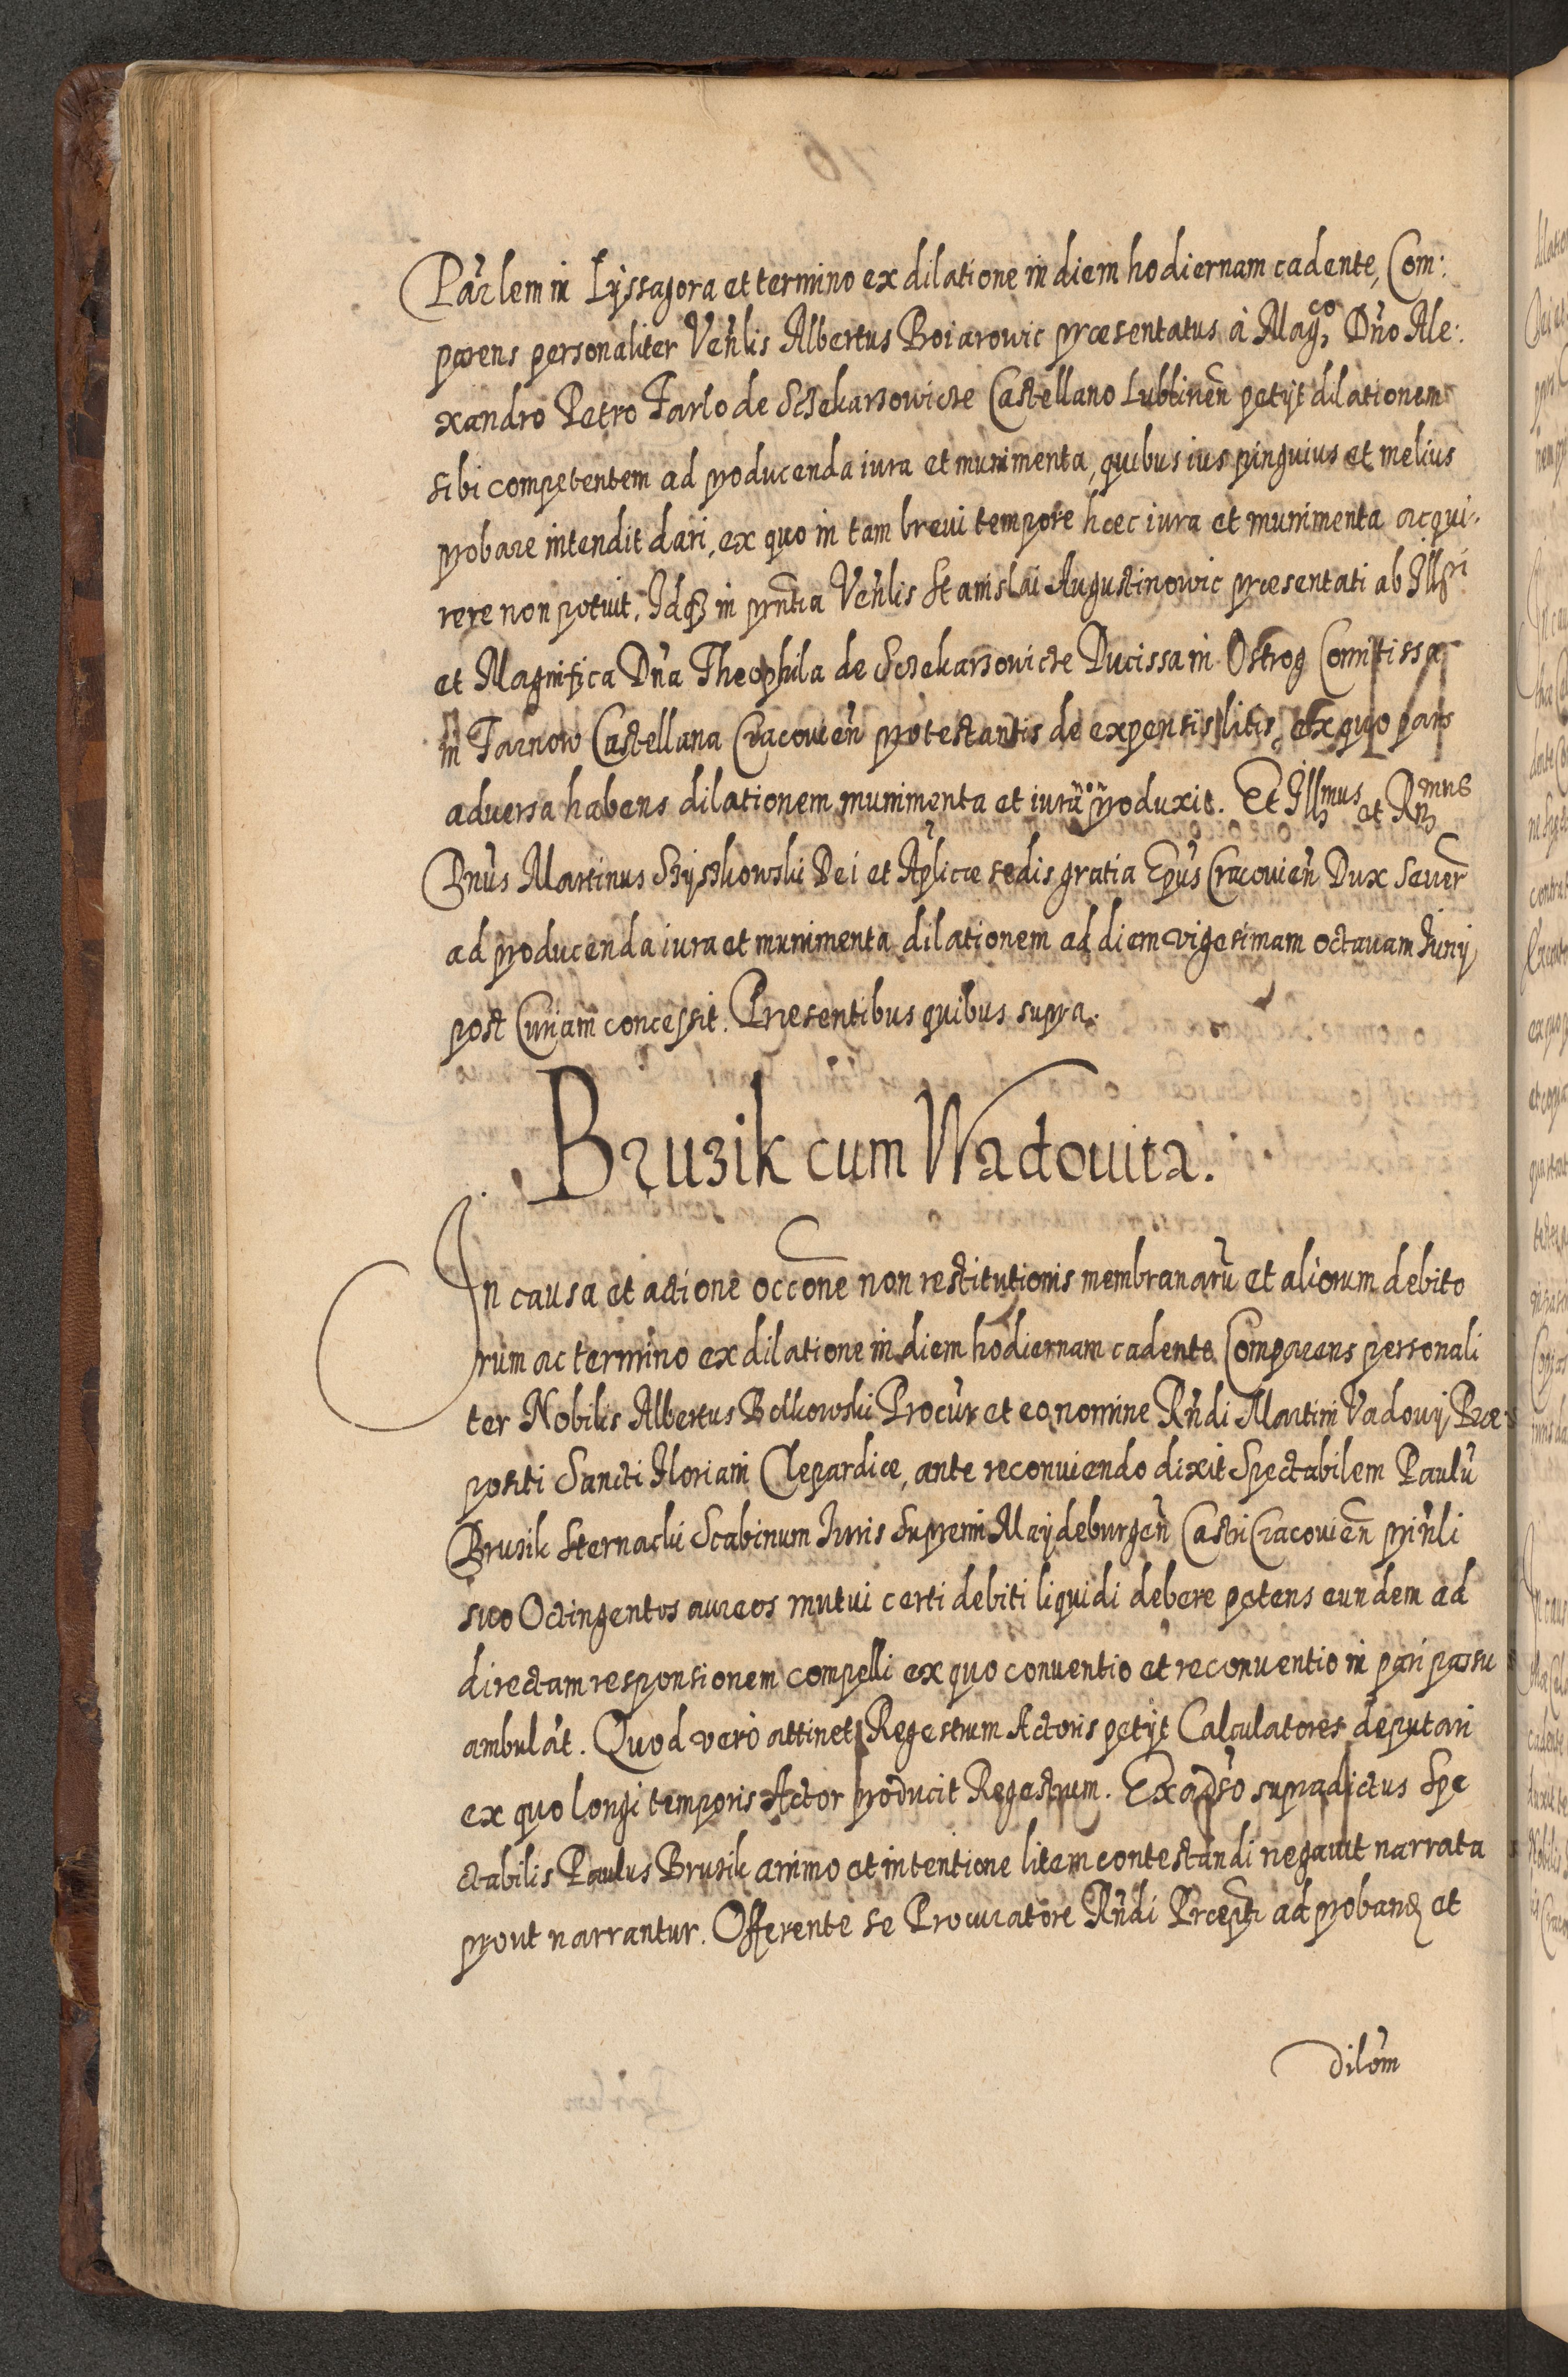 Par̃lem in Lyssagora et termino ex dilatione in diem hodiernam cadente, Com:
parens personaliter Veñlis Albertus Boiarowic præsentatus à Mag:co Dño Ale:
xandro Petro Tarlo de Sczekarzowicze Castellano Lublineñ petijt dilationem
sibi competentem ad producenda iura et munimenta, quibus ius pinguius et melius
probare intendit dari, ex quo in tam brevi tempore hæc iura et munimenta acqui:
rere non potuit. Idq3 in pñtia Veñlis Stanislai Augustinowic præsentati ab Illri
et Magnifica Dña Theophila de Sczekarzowicze Ducissa in Ostrog Comitissa
in Tarnow Castellana Cracovieñ protestantis de expensis litis, ex quo pars
adversa habens dilationem munimenta et iura non produxit. Et Illmus et Rmus
Dñus Martinus Szyszkowski Dei et Aplicæ sedis gratia Epus Cracovieñ Dux Seuer̃
ad producenda iura et munimenta dilationem ad diem vigesimam octauam Iunij
post Curiam concessit. Præsentibus quibus supra.
Bruzik cum Wadouita.
In causa et actione occõne non restitutionis membranarũ et aliorum debito
rum ac termino ex dilatione in diem hodiernam cadente Comparens personali
ter Nobilis Albertus Belkowski Procur̃ et eo nomine Rñdi Martini Vadovij Præ
positi Sancti Floriani Clepardiæ, ante reconuiendo dixit Spectabilem Paulũ
Bruzik Sternacki Scabinum Iuris Supremi Maydeburgeñ Castri Cracovieñ pinli
suo Octingentos aureos mutui certi debiti liquidi debere petens eundem ad
directam responsionem compelli ex quo conuentio et reconuentio in pari passu
ambulãt. Quod verò attinet Regestrum Actoris petijt Calculatores deputari
ex quo longi temporis Actor producit Regestrum. Ex adṽso supradictus Spe
ctabilis Paulus Bruzik animo et intentione litem contestandi negauit narrata
prout narrantur. Offerente se Procuratore Rñdi Præpti ad proband et
dilõm